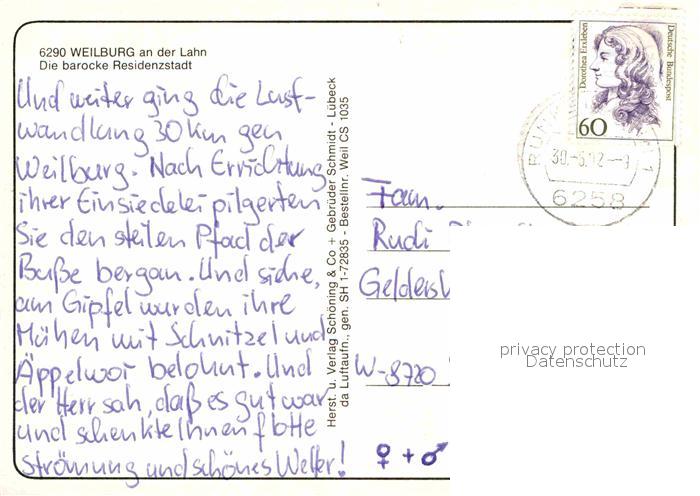 6290 WEILBURG an der Lahn
Die barocke Residenzstadt
Und weiter ging die Lust-
wandlung 30 km gen
Weilburg. Nach Errichtung
ihrer Einsiedelei pilgerten
Sie den steilen Pfad der
Buße bergan. Und siehe,
am Gipfel wurden ihre
Mühen mit Schnitzel und
Äppelwoi belohnt. Und
der Herr sah, daß es gut war
und schenkte Ihnen flotte
Strömung und schönes Wetter!
Herst. u. Verlag Schöning & Co + Gebrüder Schmidt - Lübeck
da Luftaufn., gen. SH 1-72835 - Bestellnr. Weil CS 1035
Dorothea Erxleben
Deutsche Bundespost
60
6258
Fam.
Rudi
W-8720
♀ + ♂
privacy protection
Datenschutz